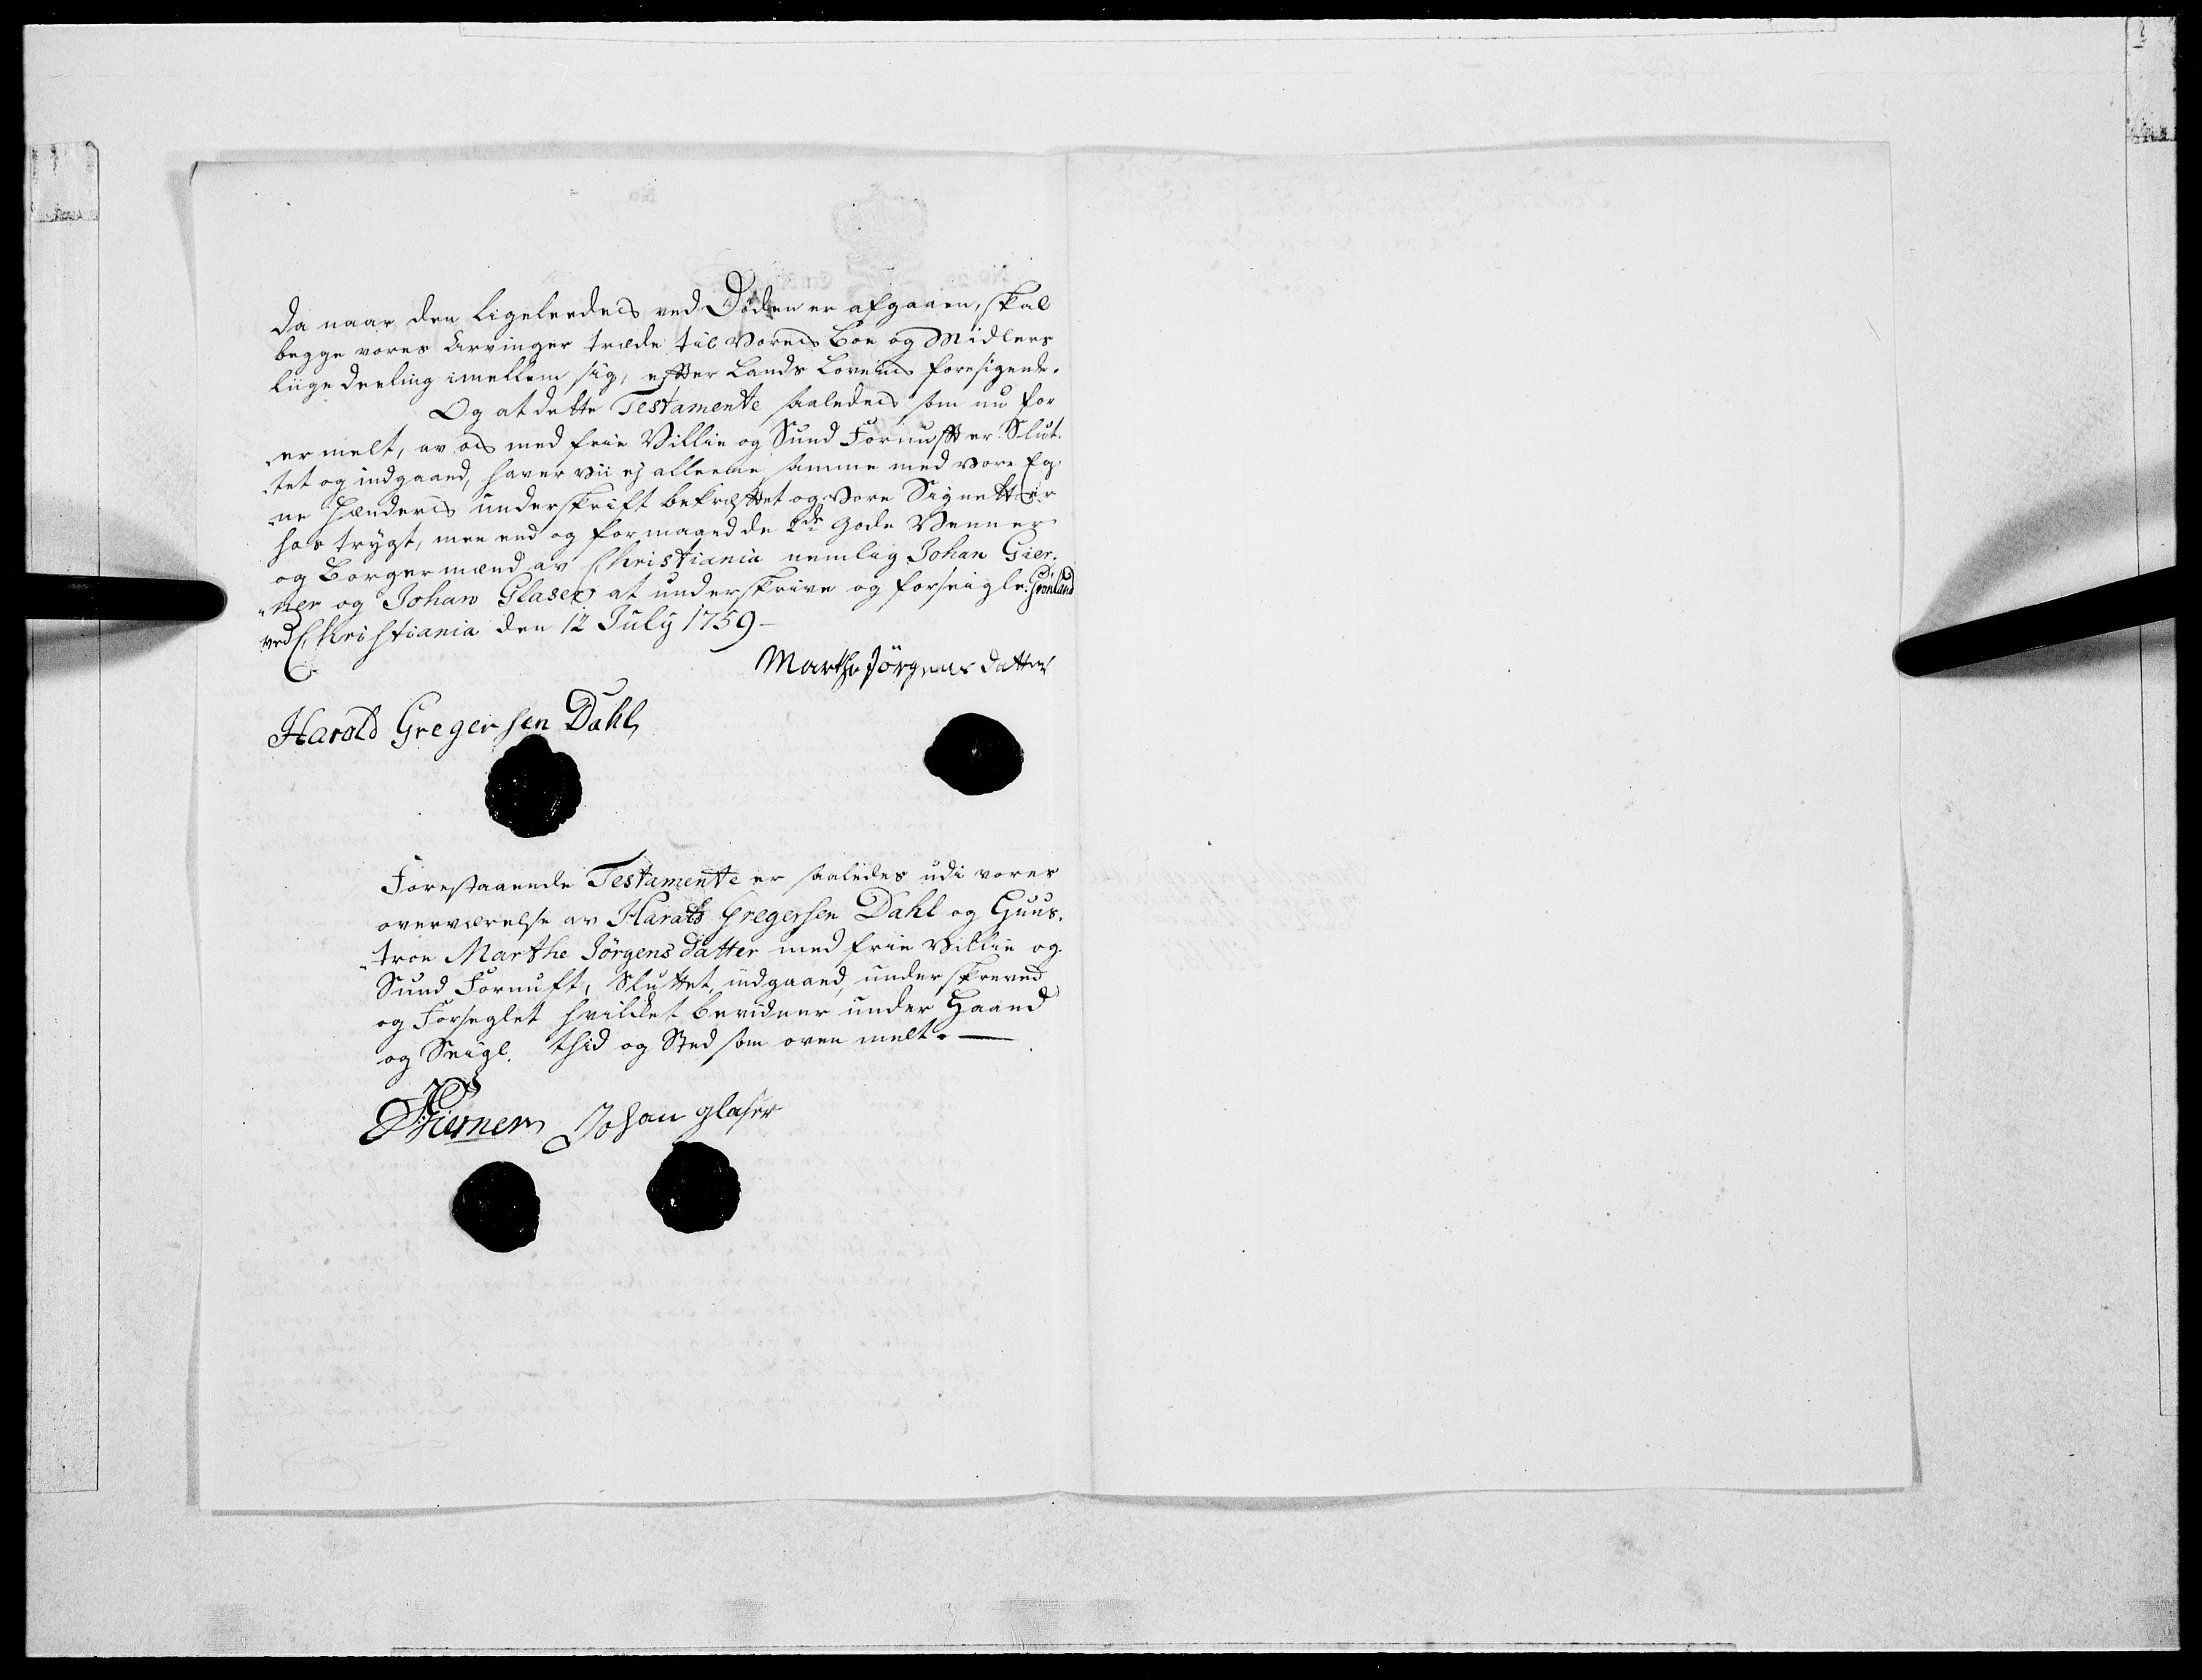 Da naar den ligeleedes ved Døden er afgaaen, skal
begge vores Arvinger træde til Vores Boe og Midlers
liige deeling imellem sig, effter Lands Lovens foresigende.
Og at dette Testamente saaledes som nu for
"er melt, av os med frie Villie og Sund Fornufft er Slut¬
"tet og indgaaed, haver vii ej alleene samme med vore Eg¬
"ne Hænders underskrift bekræfftet og vore Signetter
hos trygt, men end og formaaed de 2de gode Venner
og Borgermænd av Christiania nemlig Johan Gier¬
"ner og Johan Glaser at underskrive og forseigle. Grønland
ved Christiania den 12 July 1759 -
Marthe Jörgens datter
Harold Gregersen Dahl,
Forestaaende Testamente er saaledes udi vores
overværelse av Harald Gregersen Dahl og Huus¬
"troe Marthe Jörgens datter med frie Villie og
Sund Fornuft, Sluttet, indgaaed, underskreved
og Forseglet hvilket bevidner under Haand
og Seigl. thid og Sted som oven melt. —
Gierner Johan glaser